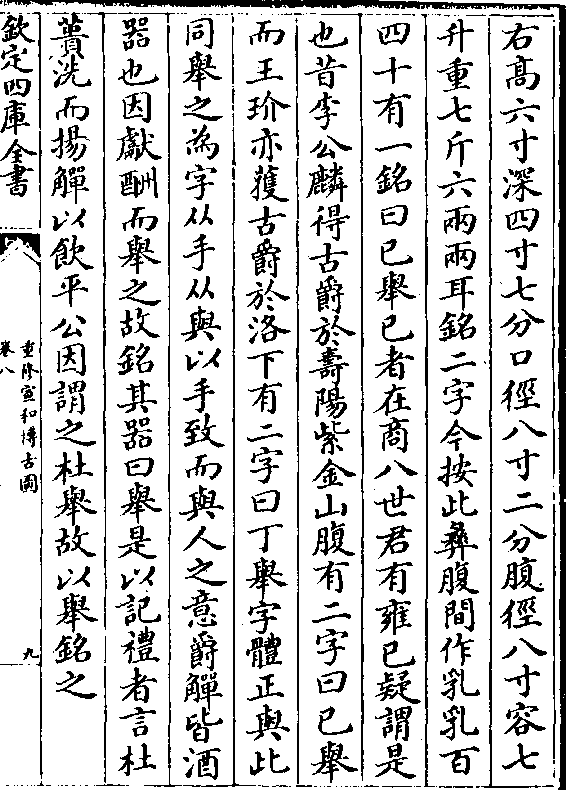 右高六寸深四寸七分口徑八寸二分腹徑八寸容七
升重七斤六兩兩耳銘二字今按此彝腹間作乳乳百
四十有一銘曰已舉已者在商八世君有雍已疑謂是
也昔李公麟得古爵於壽陽紫金山腹有二字曰已舉
而王玠亦獲古爵於洛下有二字曰丁舉字體正與此
同舉之為字从手从與以手致而與人之意爵觶皆酒
器也因獻酬而舉之故銘其器曰舉是以記禮者言杜
蕢洗而揚觶以飲平公因謂之杜舉故以舉銘之
欽定四庫全書
重修宣和博古圖
卷八
九